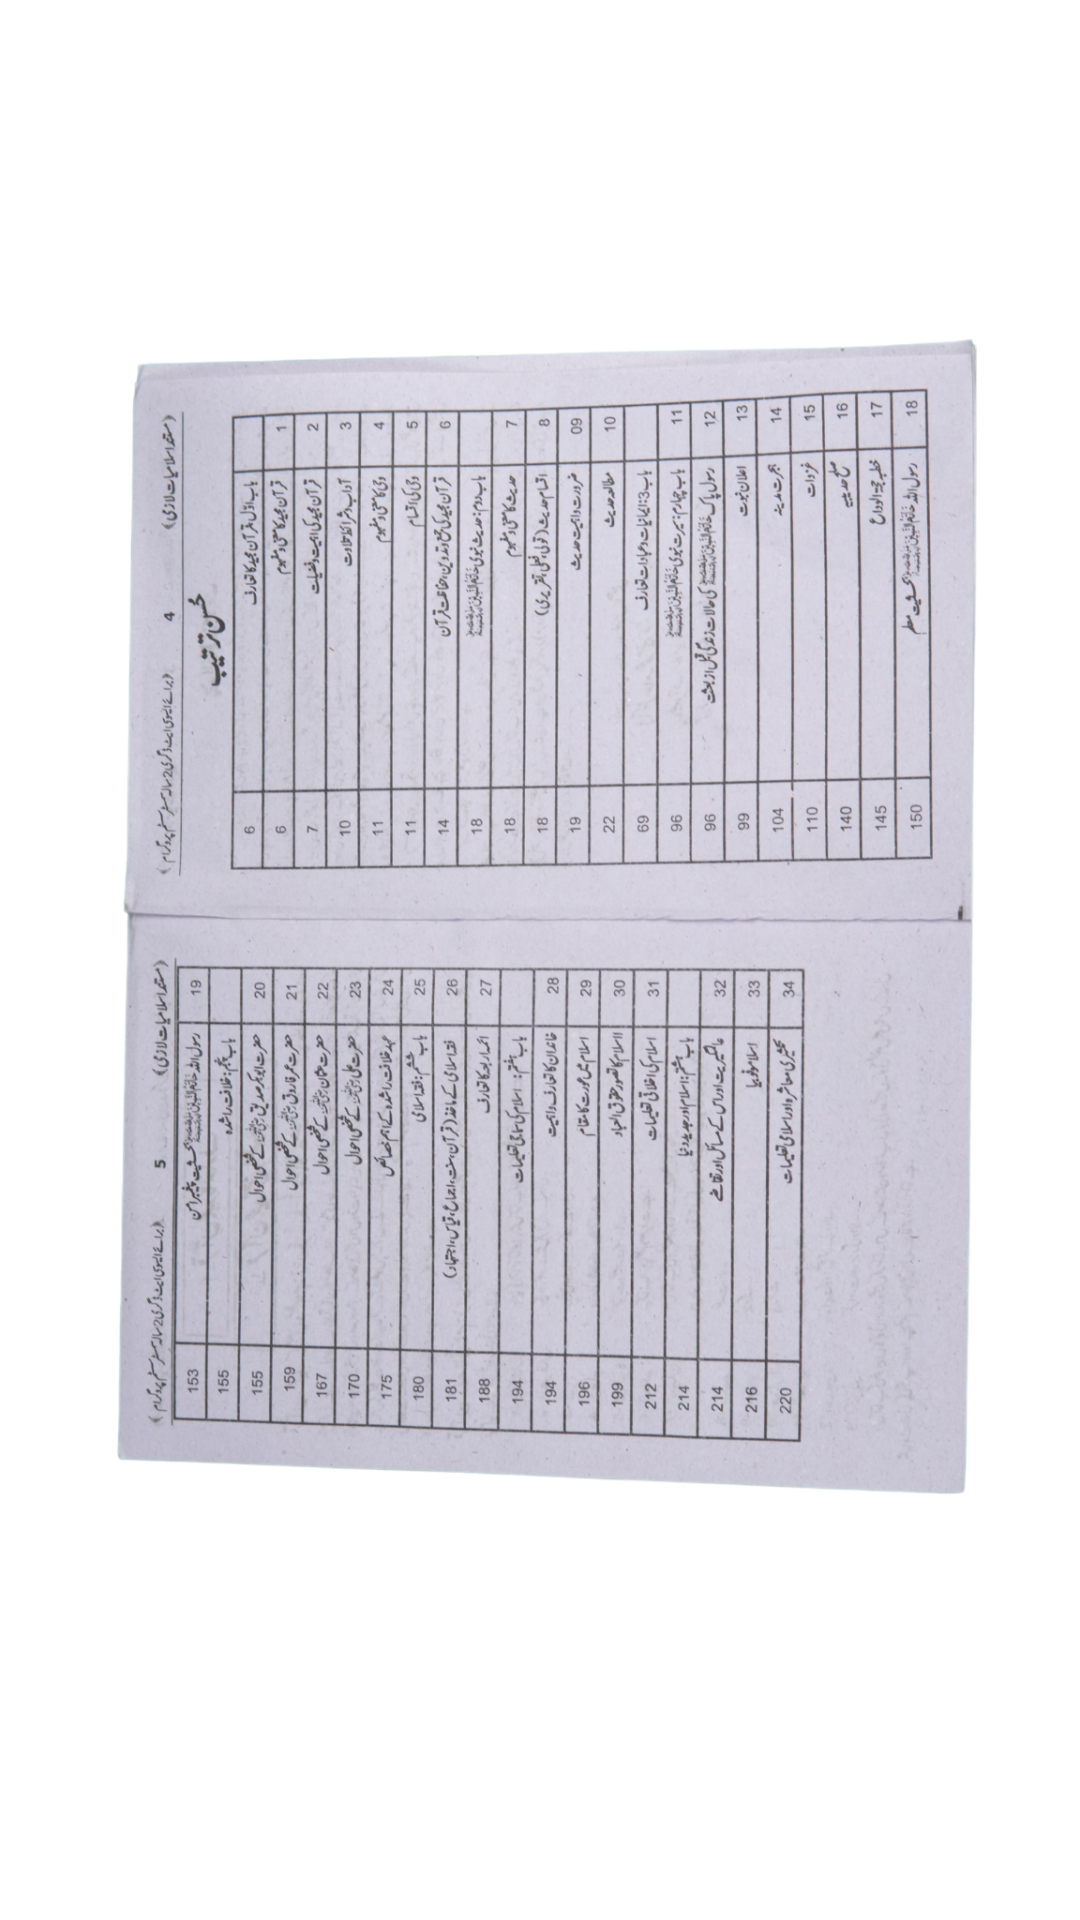 (مستند اسلامیات لازمی) 4 (برائے ایسوسی ایٹ ڈگری 2 سالہ سمسٹر سسٹم پروگرام)
حسن ترتیب
باب اوّل: قرآن مجید کا تعارف 6
1 قرآن مجید کا معنی و مفہوم 6
2 قرآن مجید کی اہمیت و فضیلت 7
3 آداب و شرائط تلاوت 10
4 وحی کا معنی و مفہوم 11
5 وحی کی اقسام 11
6 قرآن مجید کی جمع و تدوین، حفاظت قرآن 14
باب دوم: حدیث نبوی خاتم النبیین صلی اللہ علیہ وسلم 18
7 حدیث کا معنی و مفہوم 18
8 اقسام حدیث (قولی، فعلی، تقریری) 18
09 ضرورت و اہمیت حدیث 19
10 مطالعہ حدیث 22
باب 3: ایمانیات و عبادات تعارف 69
11 باب چہارم: سیرت نبوی خاتم النبیین صلی اللہ علیہ وسلم 96
12 رسول پاک خاتم النبیین صلی اللہ علیہ وسلم کی حالات زندگی قبل از بعثت 96
13 اعلان نبوت 99
14 ہجرت مدینہ 104
15 غزوات 110
16 صلح حدیبیہ 140
17 خطبہ حجۃ الوداع 145
18 رسول اللہ خاتم النبیین صلی اللہ علیہ وسلم بحیثیت معلم 150
(مستند اسلامیات لازمی) 5 (برائے ایسوسی ایٹ ڈگری 2 سالہ سمسٹر سسٹم پروگرام)
19 رسول اللہ خاتم النبیین صلی اللہ علیہ وسلم بحیثیت پیغمبر امن 153
باب پنجم: خلافت راشدہ 155
20 حضرت ابوبکر صدیق رضی اللہ عنہ کے شخصی احوال 155
21 حضرت عمر فاروق رضی اللہ عنہ کے شخصی احوال 159
22 حضرت عثمان رضی اللہ عنہ کے شخصی احوال 167
23 حضرت علی رضی اللہ عنہ کے شخصی احوال 170
24 عہد خلافت راشدہ کے اہم خصائص 175
25 باب ششم: فقہ اسلامی 180
26 فقہ اسلامی کے ماخذ (قرآن، سنت، اجماع، قیاس، اجتہاد) 181
27 ائمہ اربعہ کا تعارف 188
باب ہفتم: اسلام کی سماجی تعلیمات 194
28 خاندان کا تعارف و اہمیت 194
29 اسلام میں عورت کا مقام 196
30 اسلام کا تصور حقوق العباد 199
31 اسلام کی اخلاقی تعلیمات 212
باب ہشتم: اسلام اور جدید دنیا 214
32 عالمگیریت اور اس کے مسائل اور تقاضے 214
33 اسلامو فوبیا 216
34 تکثیری معاشرہ اور اسلامی تعلیمات 220